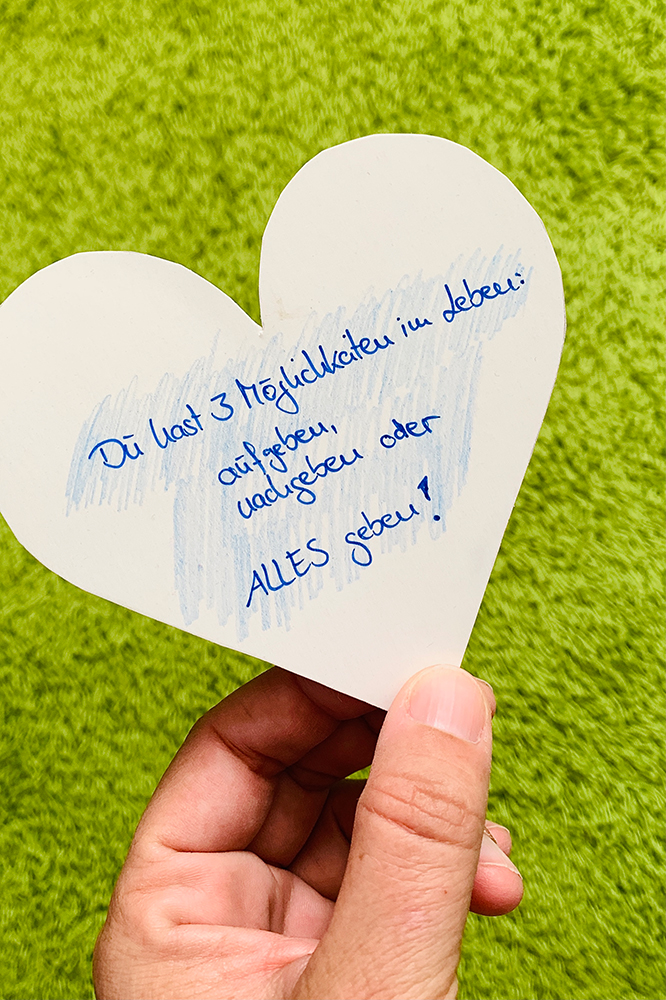 Du hast 3 Möglichkeiten im Leben:
aufgeben,
nachgeben oder
ALLES geben!